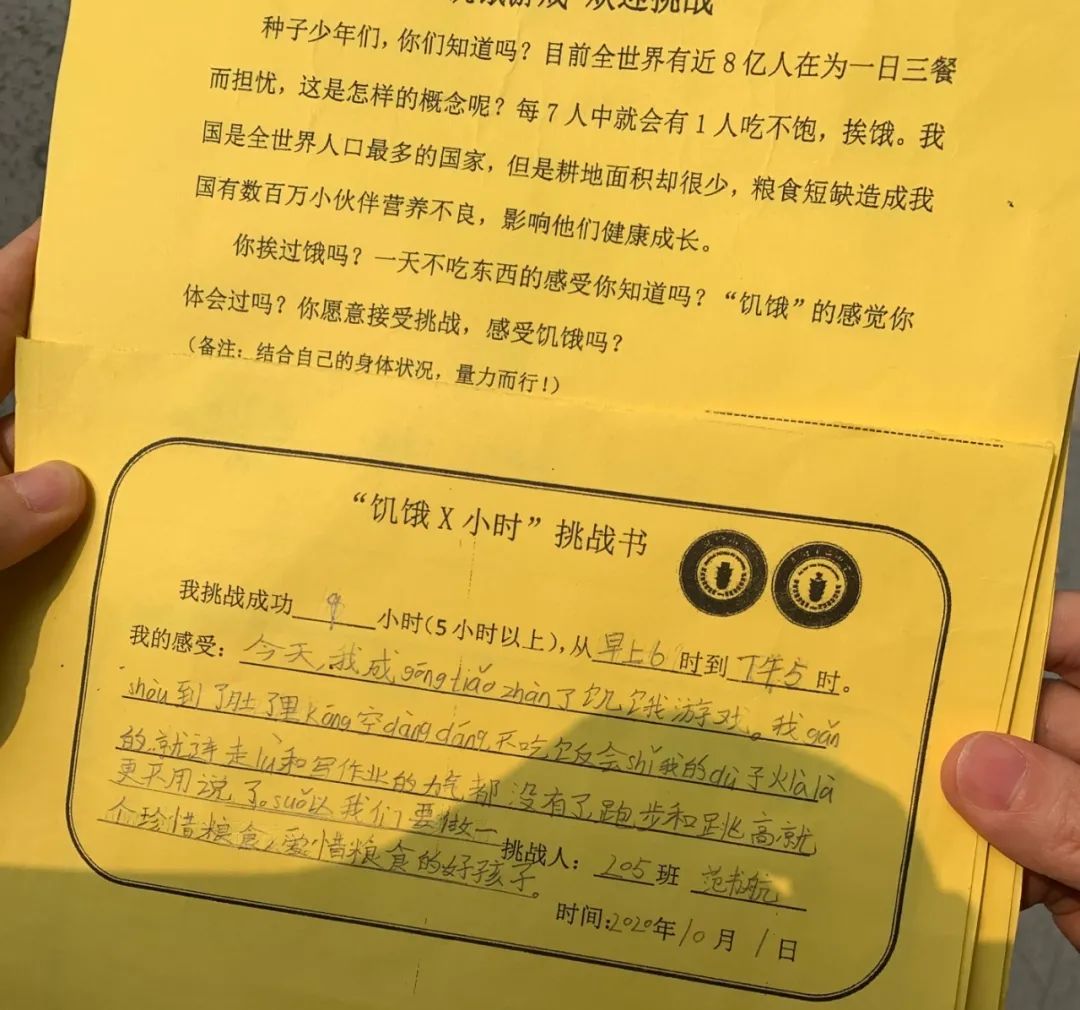 饥饿游戏 欢迎挑战
种子少年们，你们知道吗？目前全世界有近8亿人在为一日三餐
而担忧，这是怎样的概念呢？每7人中就会有1人吃不饱，挨饿。我
国是全世界人口最多的国家，但是耕地面积却很少，粮食短缺造成我
国有数百万小伙伴营养不良，影响他们健康成长。
你挨过饿吗？一天不吃东西的感受你知道吗？“饥饿”的感觉你
体会过吗？你愿意接受挑战，感受饥饿吗？
（备注：结合自己的身体状况，量力而行！）
“饥饿X小时”挑战书
我挑战成功 小时(5小时以上)，从早上6时到下午5时。
我的感受：今天，我成gōng tiǎo zhàn了饥饿游戏。我gǎn
shòu到了肚子里kōng空dàng dáng，不吃饭会shǐ我的dù子火là là
的，就连走lù和写作业的力气都没有了，跑步和跳高就
更不用说了。suǒ以我们要做一
个珍惜粮食，爱惜粮食的好孩子。
挑战人：205班 范书航
时间：2020年10月1日